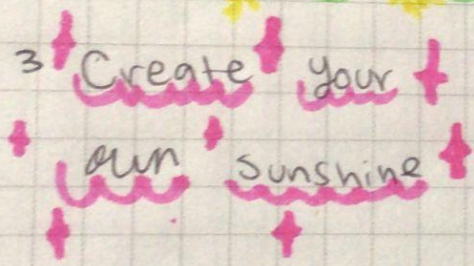 3 Create your
own sunshine